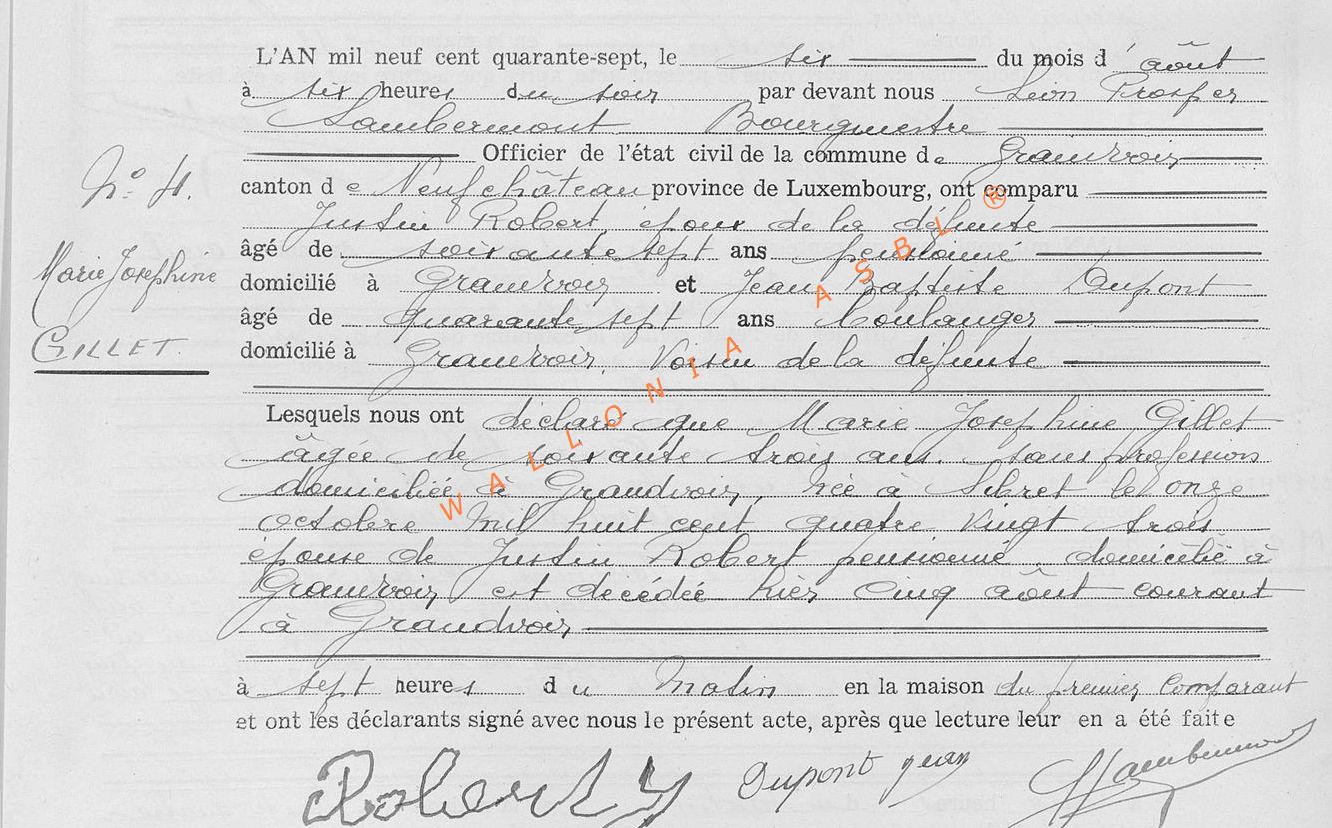 L'AN mil neuf cent quarante-sept, le six du mois d'août
à six heures du soir par devant nous Léon Prosper
Lambermont Bourgmestre
Officier de l'état civil de la commune de Grandvoir
canton de Neufchâteau province de Luxembourg, ont comparu
Justin Robert, époux de la défunte
âgé de soixante sept ans pensionné
domicilié à Grandvoir et Jean Baptiste Dupont
âgé de quarante sept ans boulanger
domicilié à Grandvoir, Voisin de la défunte
Lesquels nous ont déclaré que Marie Josephine Gillet
âgée de soixante trois ans. sans profession
domiciliée à Grandvoir, née à Sibret le onze
octobre mil huit cent quatre vingt trois
épouse de Justin Robert pensionné domicilié à
Grandvoir est décédée hier cinq août courant
à Grandvoir
à sept heures du matin en la maison du premier Comparant
et ont les déclarants signé avec nous le présent acte, après que lecture leur en a été faite
Robert J
Dupont Jean
Lambermont
No 4.
Marie Josephine
GILLET.
WALLONIA ASBL ®